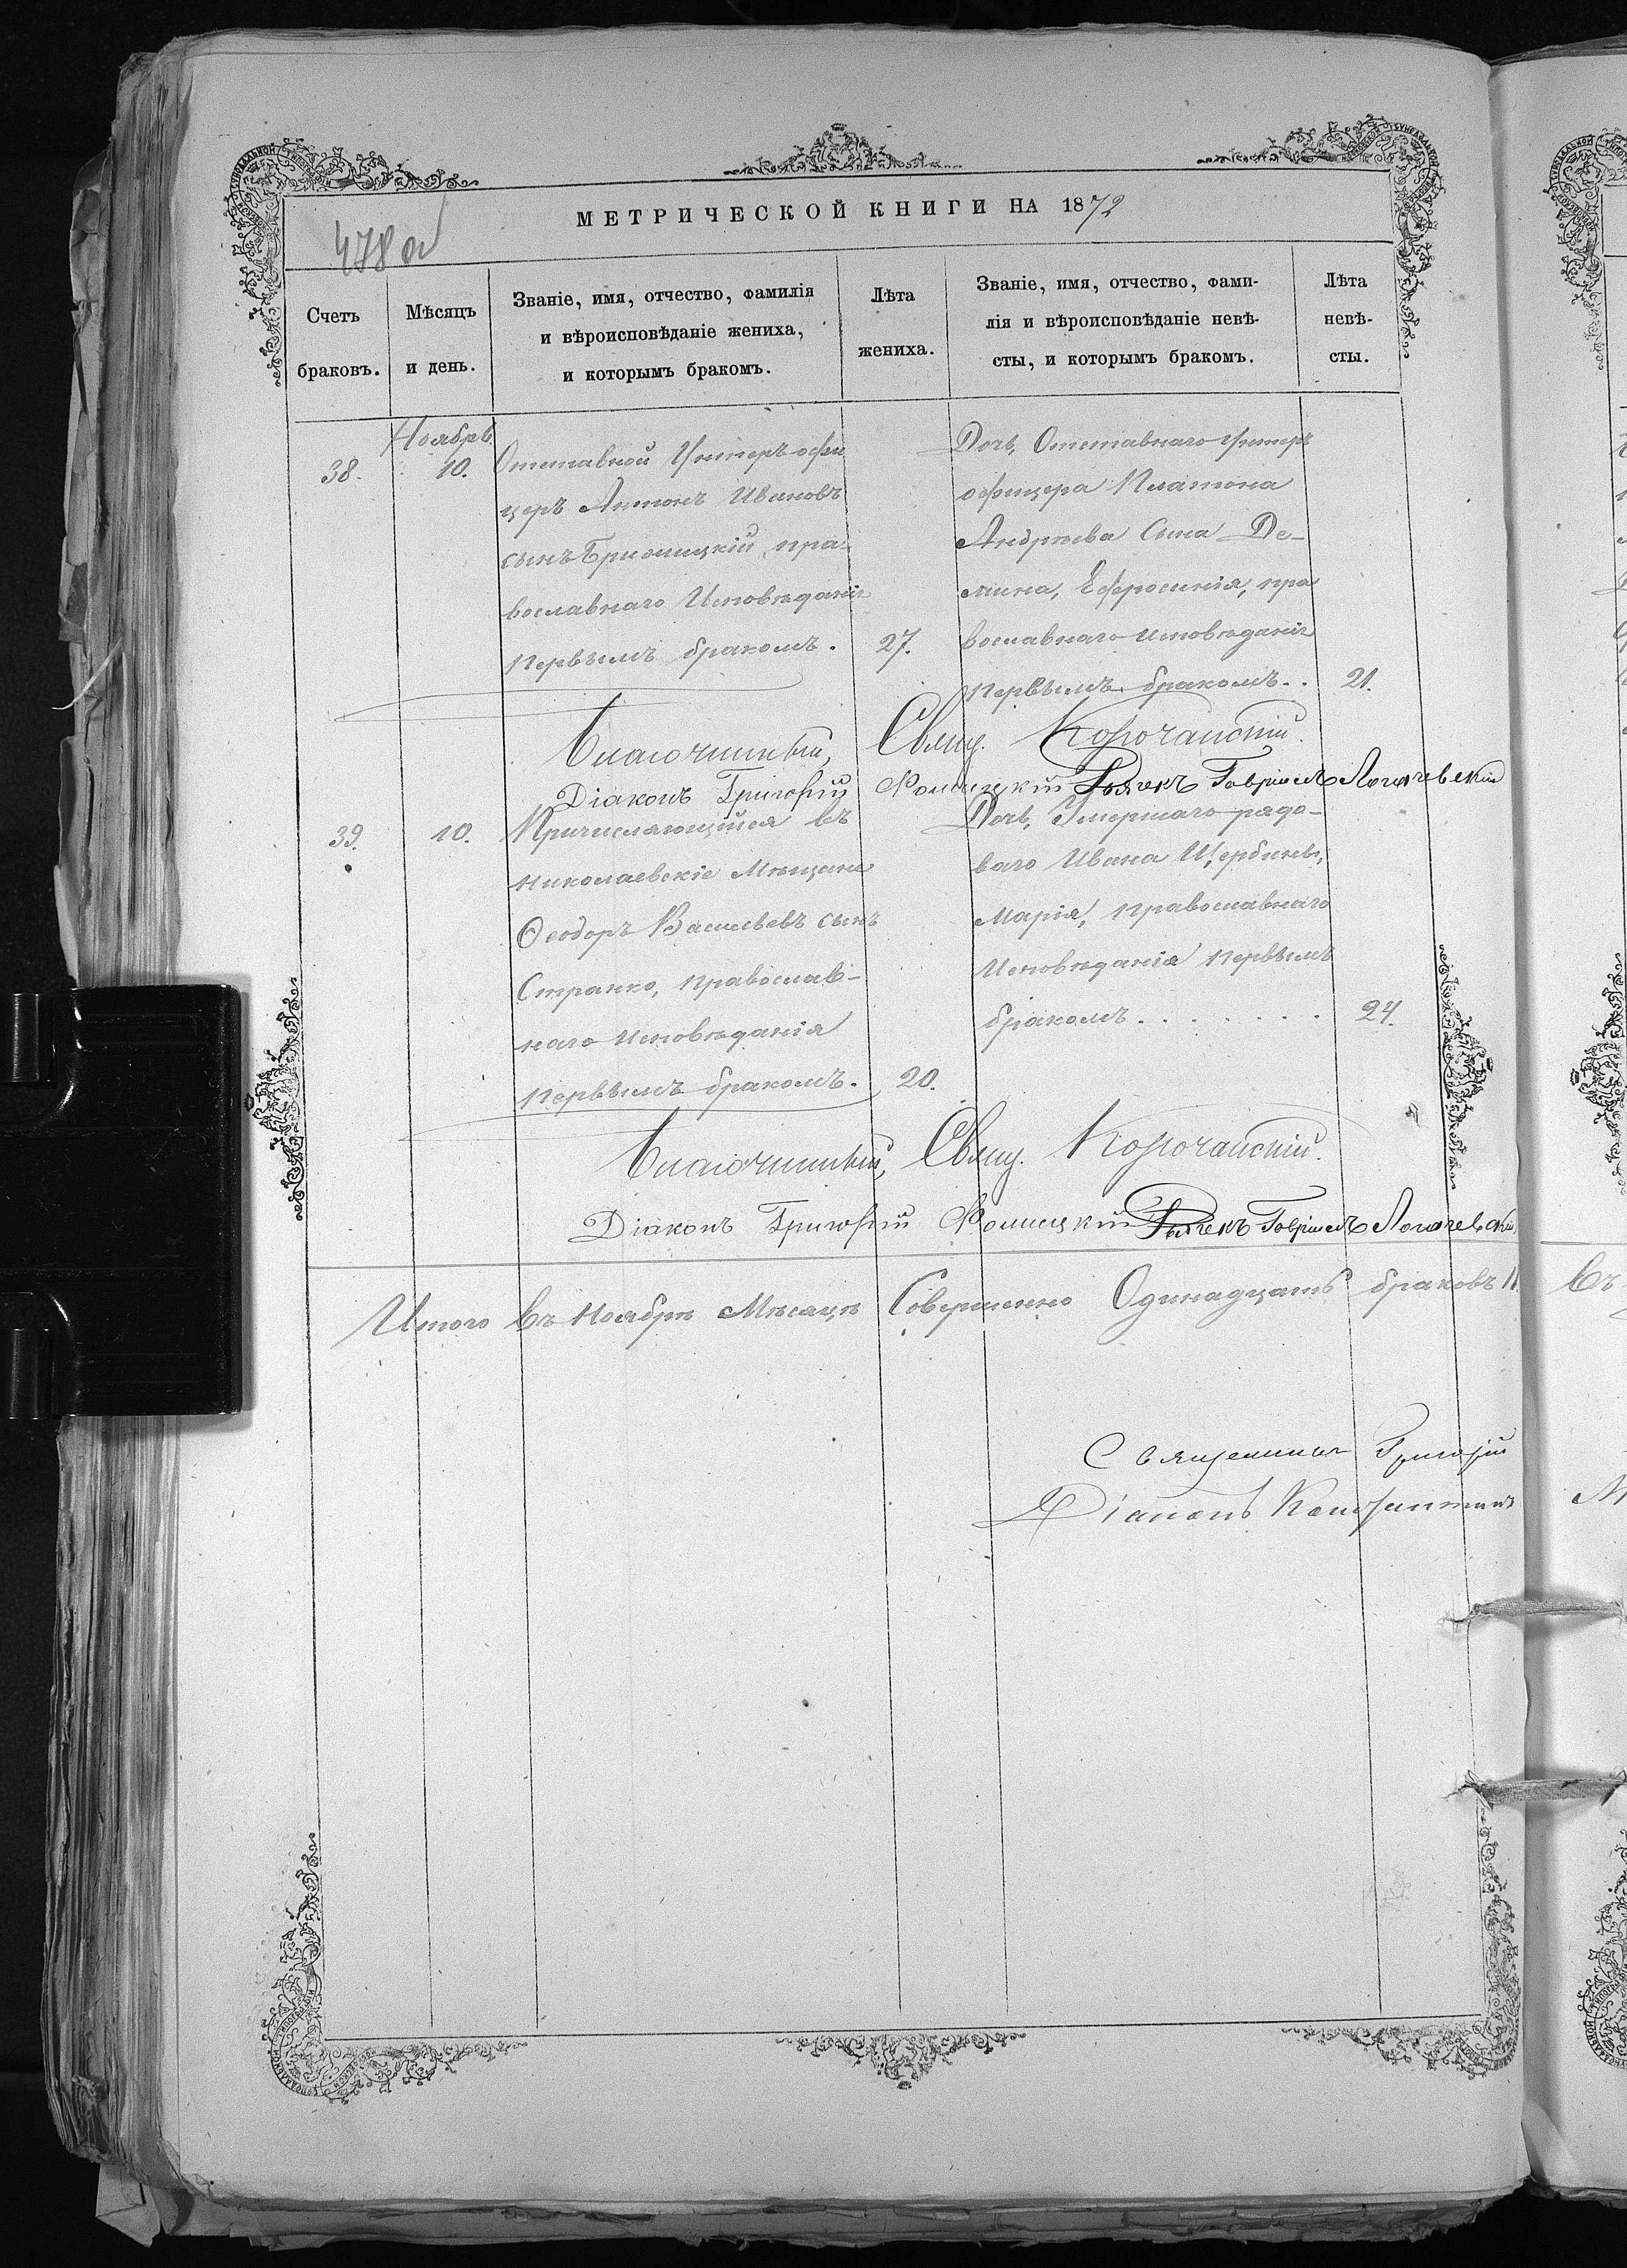 МЕТРИЧЕСКОЙ КНИГИ НА 1872
478 об
Счетъ браковъ.
Мѣсяцъ и день.
Званіе, имя, отчество, фамилія
и вѣроисповѣданіе жениха,
и которымъ бракомъ.
Лѣта жениха.
Званіе, имя, отчество, фами-
лія и вѣроисповѣданіе невѣ-
сты, и которымъ бракомъ.
Лѣта невѣ-
сты.
Ноябрь
38. 10.
Отставной Унтеръ офи
церъ Антонъ Ивановъ
сынъ пра-
вославнаго Исповѣданія
первымъ бракомъ. 27.
Дочь, Отставнаго Унтеръ
офицера Платона
Андреева Сына Де-
мина, Ефросинія, пра
вославнаго исповѣданія
первымъ бракомъ. . 21.
Благочинный, Свящ. Корочанскій.
Діаконъ Григорій Гавріилъ
39. 10.
Причисляющійся въ
Николаевскіе Мѣщане
Ѳеодоръ Васильевъ сынъ
Странко, Православ-
наго Исповѣданія
первымъ бракомъ. 20.
Дочь, Умершаго рядо-
ваго Ивана Щербины,
Марія, православнаго
Исповѣданія первымъ
бракомъ. . . . . . . 24.
Благочинный, Свящ. Корочанскій.
Діаконъ Григорій Гавріилъ
Итого въ Ноябрѣ Мѣсяцѣ Совершено Одинадцать браковъ 11.
Священникъ Григорій
Діаконъ Константинъ